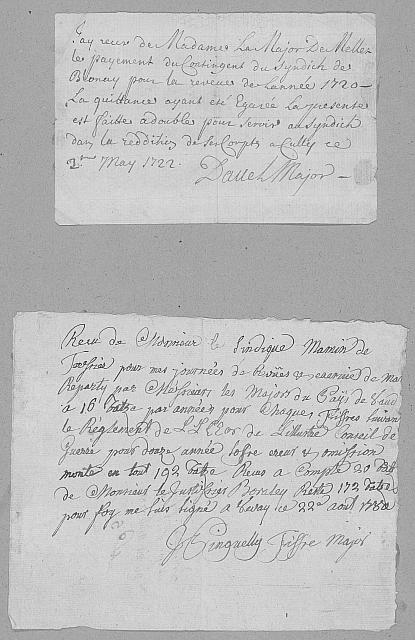 Jay reçeu de Madame La Major De Mellet
le payement du Contingent du Syndich de
Blonay pour la reveüe de Lannée 1720 –
La quittance ayant été Egarée La presente
est faitte a double pour servir au Syndich
dans la reddition de ses Compts a Cully ce
2me May 1722.
Davel Major –
Reçu de Monsieur le Sindique Mamin de
pour mes journées de Revües & exercice de ma
Reparty par Messieurs les Majors du Païs de Vaud
a 16 batz par années pour Chaques fiffres suivant
le Réglement de LL EEces de Lillustre Conseil de
Guerre pour douze année sofre erreur & omission
monte en tout 192 batz Reçus a Compte 20 batz
de Monsieur le Justissier Reste 172 batz
pour foy me suis signé a Vevay ce 22e aout
Fiffre Major